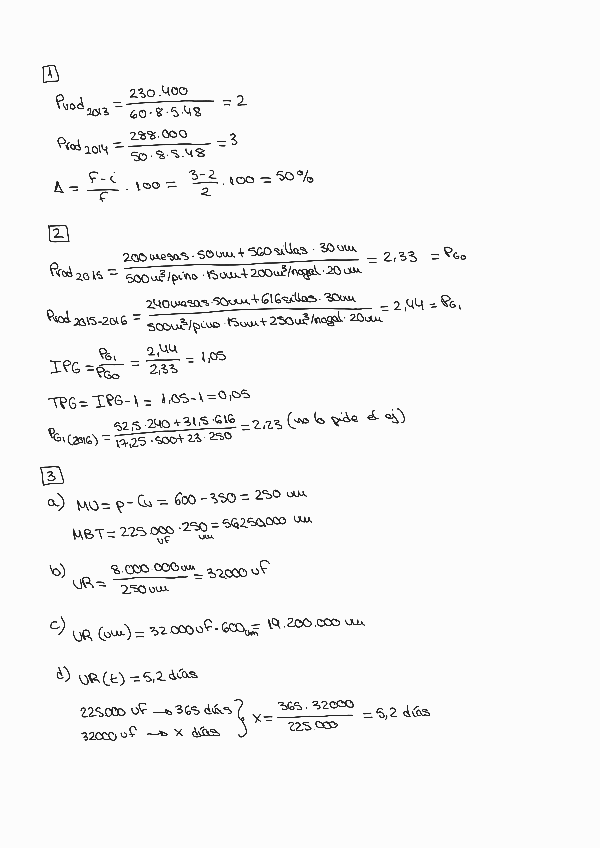 1
Prod 2013 = 230.400 / 60·8·5·48 = 2
Prod 2014 = 288.000 / 50·8·5·48 = 3
Δ = f-i / f · 100 = 3-2 / 2 · 100 = 50%
2
Prod 2015 = 200 mesas · 50 um + 560 sillas · 30 um / 500 m³/pino · 15 um + 200 m³/nogal · 20 um = 2,33 = PG0
Prod 2015-2016 = 240 mesas · 50 um + 616 sillas · 30 um / 500 m³/pino · 15 um + 250 m³/nogal · 20 um = 2,44 = PG1
IPG = PG1 / PG0 = 2,44 / 2,33 = 1,05
TPG = IPG - 1 = 1,05 - 1 = 0,05
PG1 (2016) = 52,5 · 240 + 31,5 · 616 / 17,25 · 500 + 23 · 250 = 2,23 (no lo pide el ej)
3
a) MU = p - Cu = 600 - 350 = 250 um
MBT = 225.000 uf · 250 um = 56250.000 um
b) UR = 8.000.000 um / 250 um = 32000 uf
c) UR (um) = 32.000 uf · 600 um = 19.200.000 um
d) UR(t) = 5,2 días
225000 uf → 365 días
32000 uf → x días } x = 365 · 32000 / 225.000 = 5,2 días